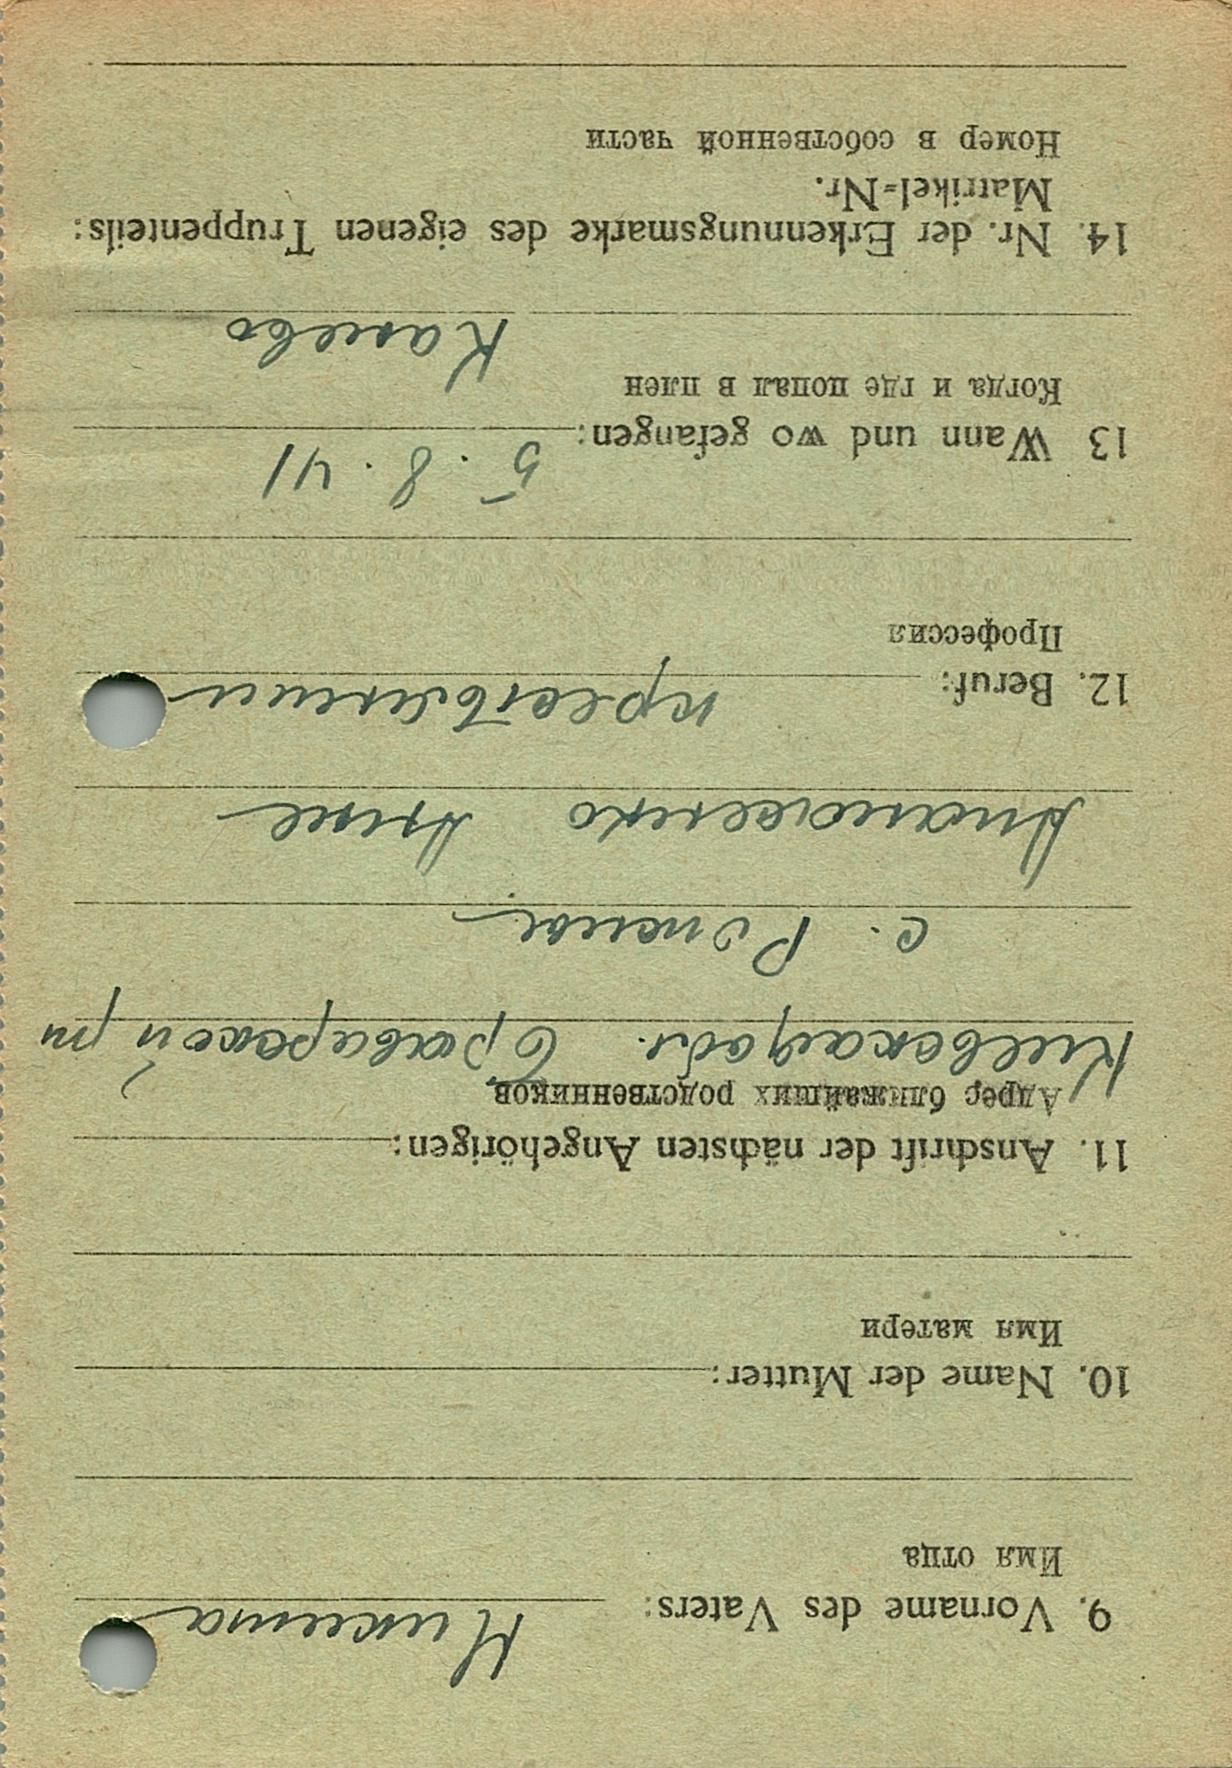 9. Vorname des Vaters: Никита
Имя отца
10. Name der Mutter:
Имя матери
11. Anschrift der nächsten Angehörigen:
Адрес ближайших родственников
Киевская обл.
с.
12. Beruf:
Профессия
13 Wann und wo gefangen: 5.8.41
Когда и где попал в плен
14. Nr. der Erkennungsmarke des eigenen Truppenteils:
Matrikel-Nr.
Номер в собственной части